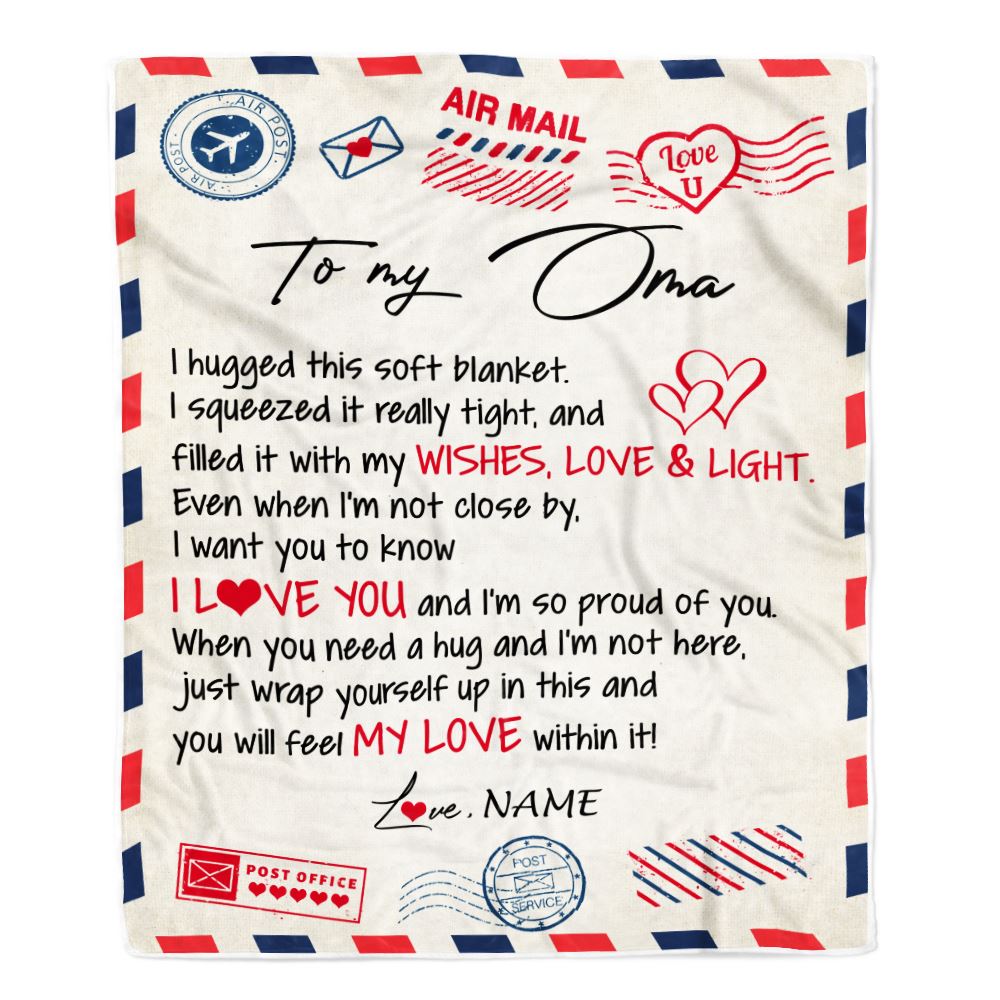 AIR POST
AIR POST
AIR MAIL
Love
U
To my Oma
I hugged this soft blanket.
I squeezed it really tight, and
filled it with my WISHES, LOVE & LIGHT.
Even when I'm not close by,
I want you to know
I L♥VE YOU and I'm so proud of you.
When you need a hug and I'm not here,
just wrap yourself up in this and
you will feel MY LOVE within it!
L♥ve, NAME
POST OFFICE
POST
SERVICE